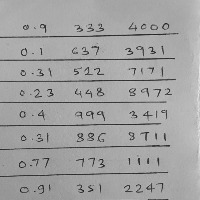 0.9 333 4000
0.1 637 3931
0.31 512 7171
0.23 448 8972
0.4 999 3419
0.31 886 8711
0.77 773 1111
0.91 351 2247